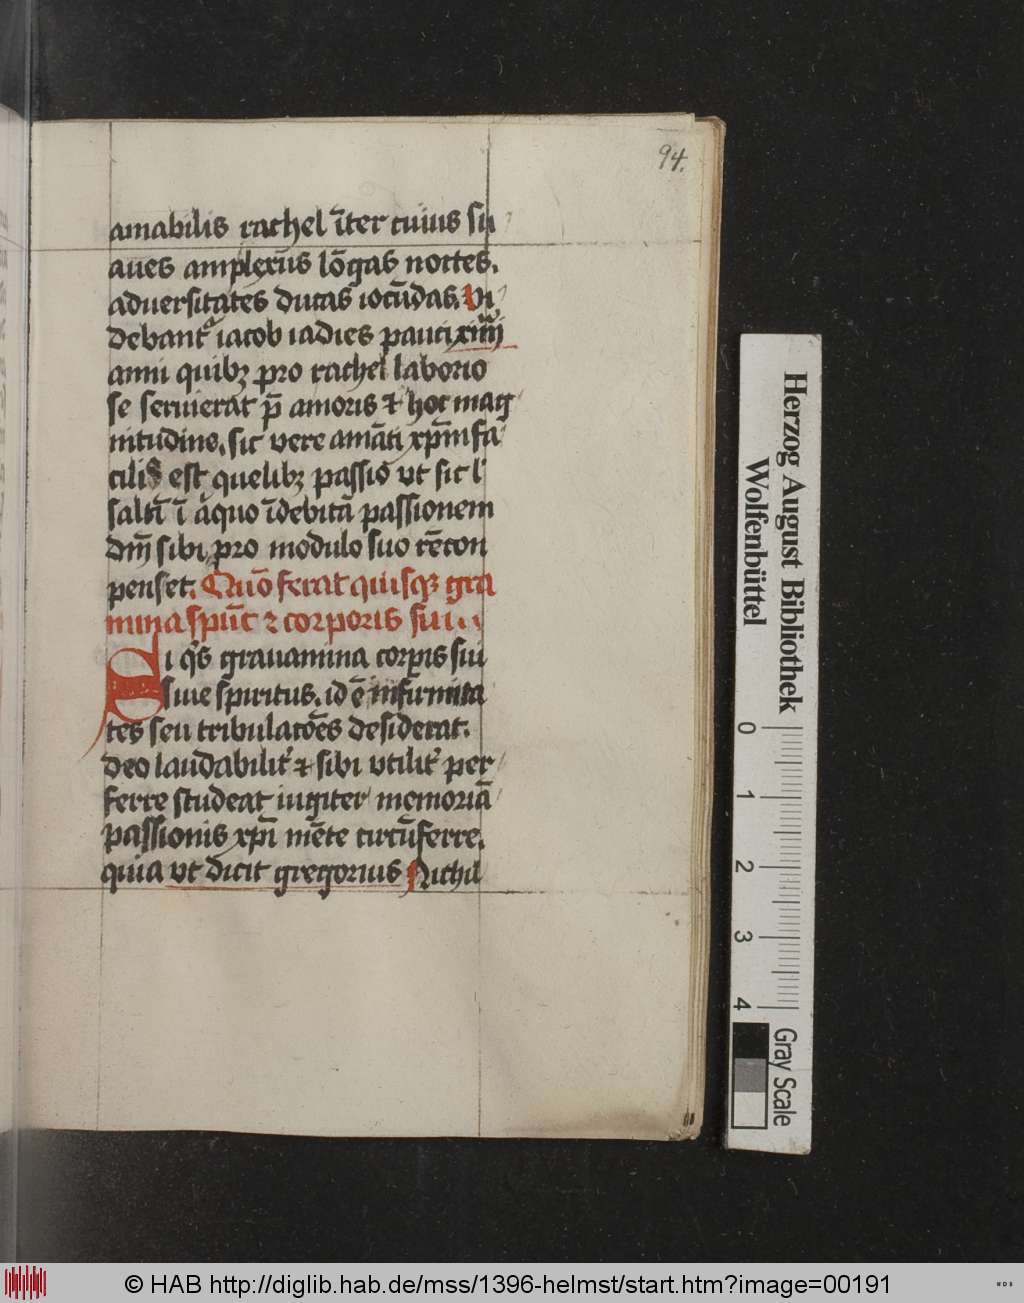 94.
amabilis rachel īter cuius su
aues amplexus lōgas noctes.
aduersitates ducas iocūdas. Vi
debant᷑ iacob iadies pauci xiiij
anni quibꝫ pro rachel laborio
se seruierat p̄ amoris ⁊ hoc mag
nitudine. sic vere amāti xp̄m fa
cilis est quelibꝫ passio vt sic l'
saltī ī āquo īdebitā passionem
dn̄i sibi pro modulo suo rēcon
penset. Quō ferat quisqꝫ gra
mina spūc ⁊ corporis sui
Si q's grauamina corꝑis sui
siue spiritus. id ē infirmita
tes seu tribulacōes desiderat.
deo laudabilit᷑ ⁊ sibi vtilit᷑ per
ferre studeat iugiter memoriā
passionis xp̄i mēte circūferre.
quia vt dicit gregorius Nichil
Herzog August Bibliothek
Wolfenbüttel
0 1 2 3 4
Gray Scale
© HAB http://diglib.hab.de/mss/1396-helmst/start.htm?image=00191